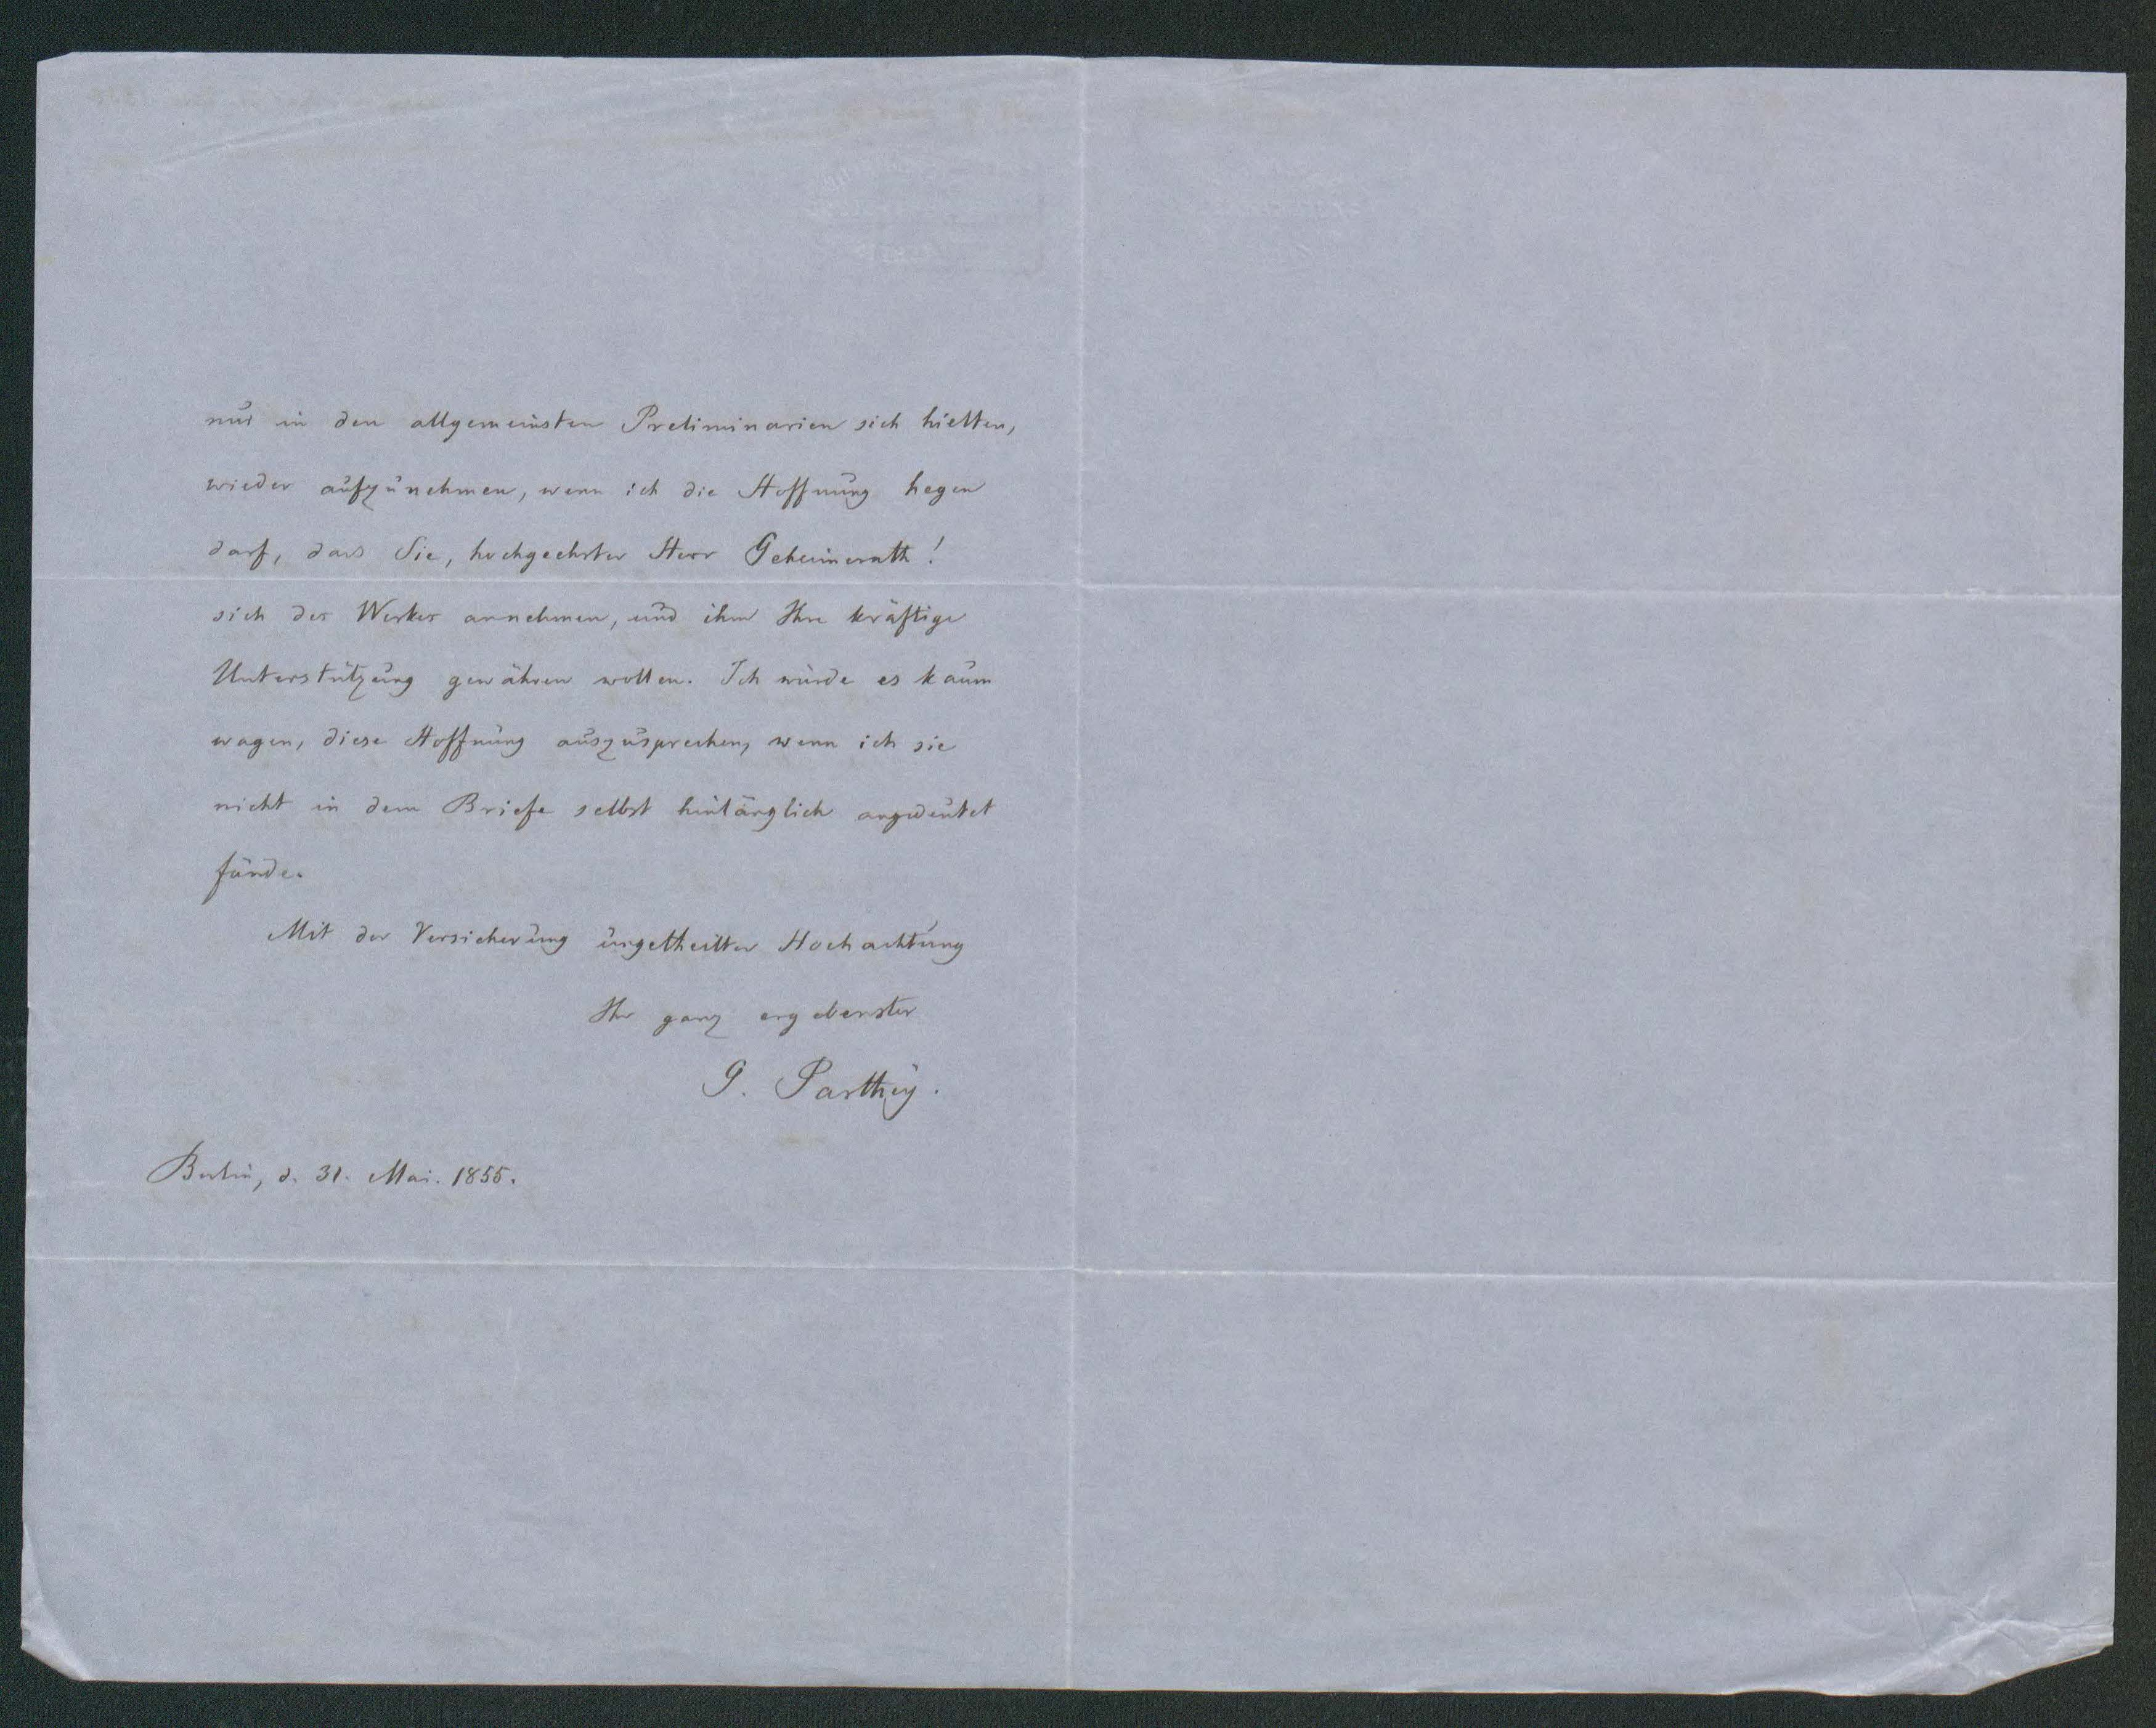 nur in den allgemeinsten Preliminarien sich hielten,
wieder aufzunehmen, wenn ich die Hoffnung hegen
darf, dass Sie, hochgeehrter Herr Geheimerath!
sich des Werkes annehmen, und ihm Ihre kräftige
Unterstützung gewähren wollen. Ich würde es kaum
wagen, diese Hoffnung auszusprechen, wenn ich sie
nicht in dem Briefe selbst hinlänglich angedeutet
fände.
Mit der Versicherung ungetheilter Hochachtung
Ihr ganz ergebenster
G. Parthey.
Berlin, d. 31. Mai. 1855.